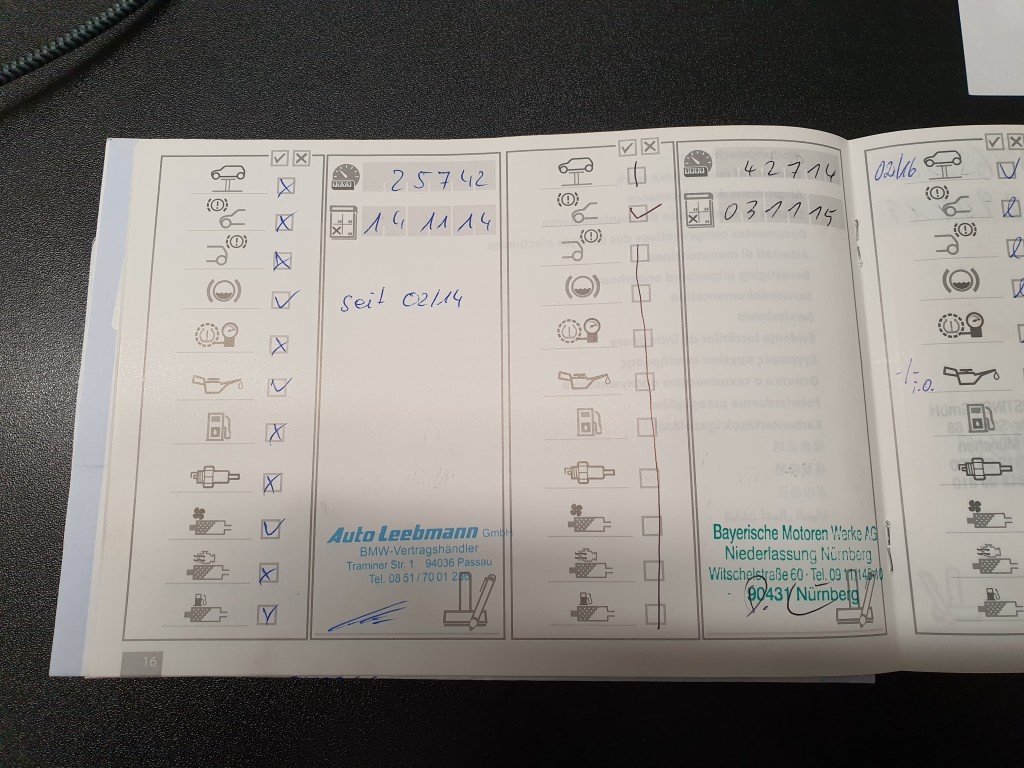 25742
14 11 14
seit 02/14
Auto Leebmann GmbH
BMW-Vertragshändler
Traminer Str. 1 94036 Passau
Tel. 08 51 / 70 01 230
16
42714
031115
Bayerische Motoren Werke AG
Niederlassung Nürnberg
Witschelstraße 60 · Tel.
90431 Nürnberg
02/16
-/-
i.o.